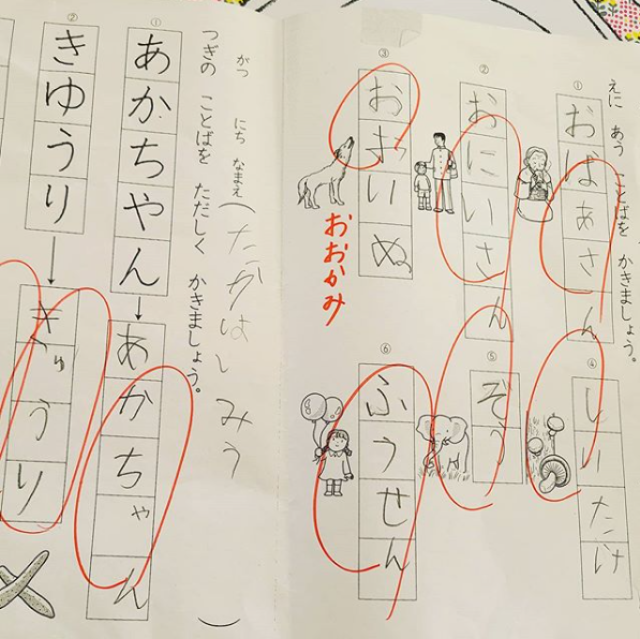 えに あう ことばを かきましょう。
① おばあさん
② おにいさん
③ おおいぬ
おおかみ
④ しいたけ
⑤ ぞう
⑥ ふうせん
がつ にち なまえ（たかはしみう）
つぎの ことばを ただしく かきましょう。
① あかちやん
あかちゃん
② きゆうり
きゅうり